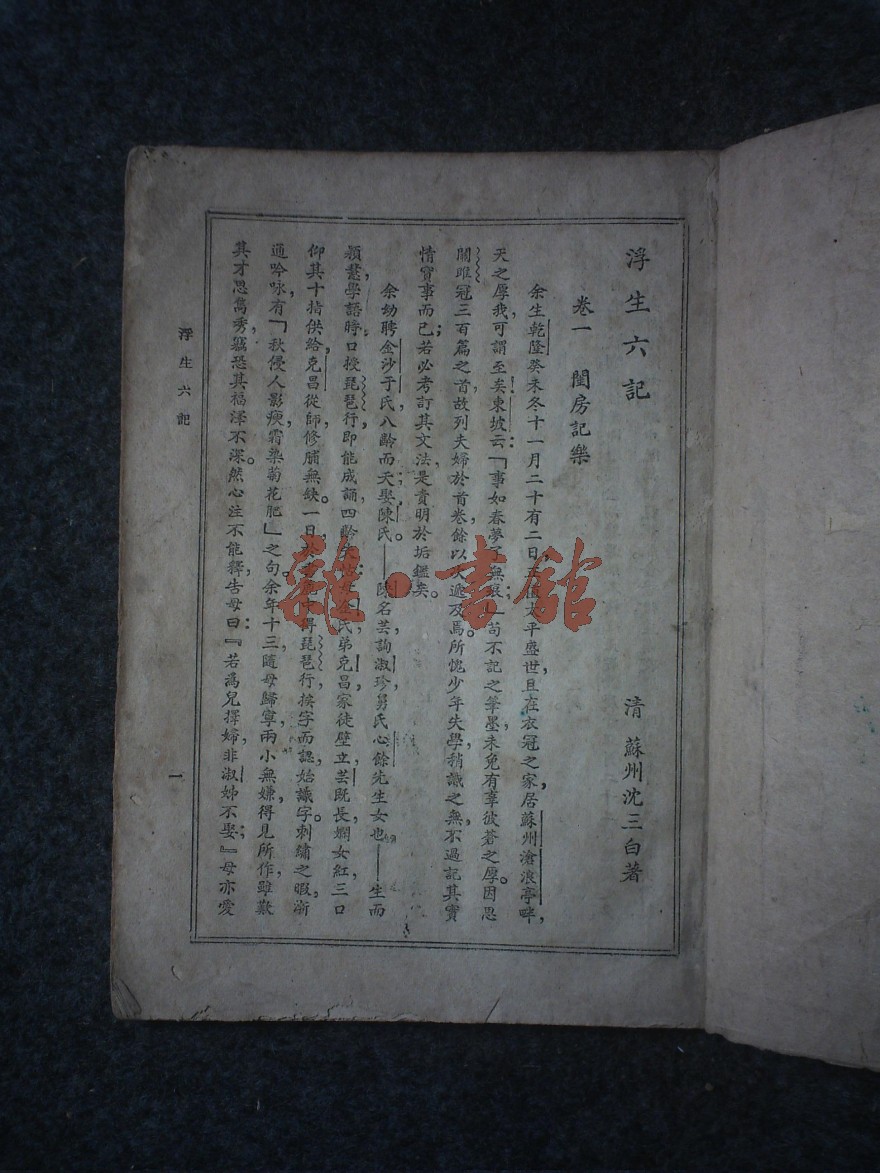 浮生六記
清 蘇州沈三白著
卷一 閨房記樂
余生乾隆癸未冬十一月二十有二日,正值太平盛世且在衣冠之家,居蘇州滄浪亭畔,
天之厚我,可謂至矣!東坡云:「事如春夢了無痕」;苟不記之筆墨,未免有辜彼蒼之厚。因思
關雎冠三百篇之首,故列夫婦於首卷,餘以次遞及焉。所愧少年失學,稍識之無,不過記其實
情實事而已;若必考訂其文法,是責明於垢鑑矣。
余幼聘金沙于氏,八齡而夭;娶陳氏。——陳名芸,詢淑珍,舅氏心餘先生女也——生而
穎慧,學語時,口授琵琶行,即能成誦。四齡失怙;母金氏,弟克昌,家徒壁立。芸既長,嫻女紅,三口
仰其十指供給;克昌從師修脯無缺。一日,於中得琵琶行,挨字而認,始識字。刺繡之暇,漸
通吟咏,有「秋侵人影瘦,霜染菊花肥」之句。余年十三,隨母歸寧,兩小無嫌,得見所作,雖歎
其才思雋秀,竊恐其福澤不深。然心注不能釋,告母曰:『若爲兒擇婦,非淑姊不娶;』母亦愛
浮生六記
一
雜·書館